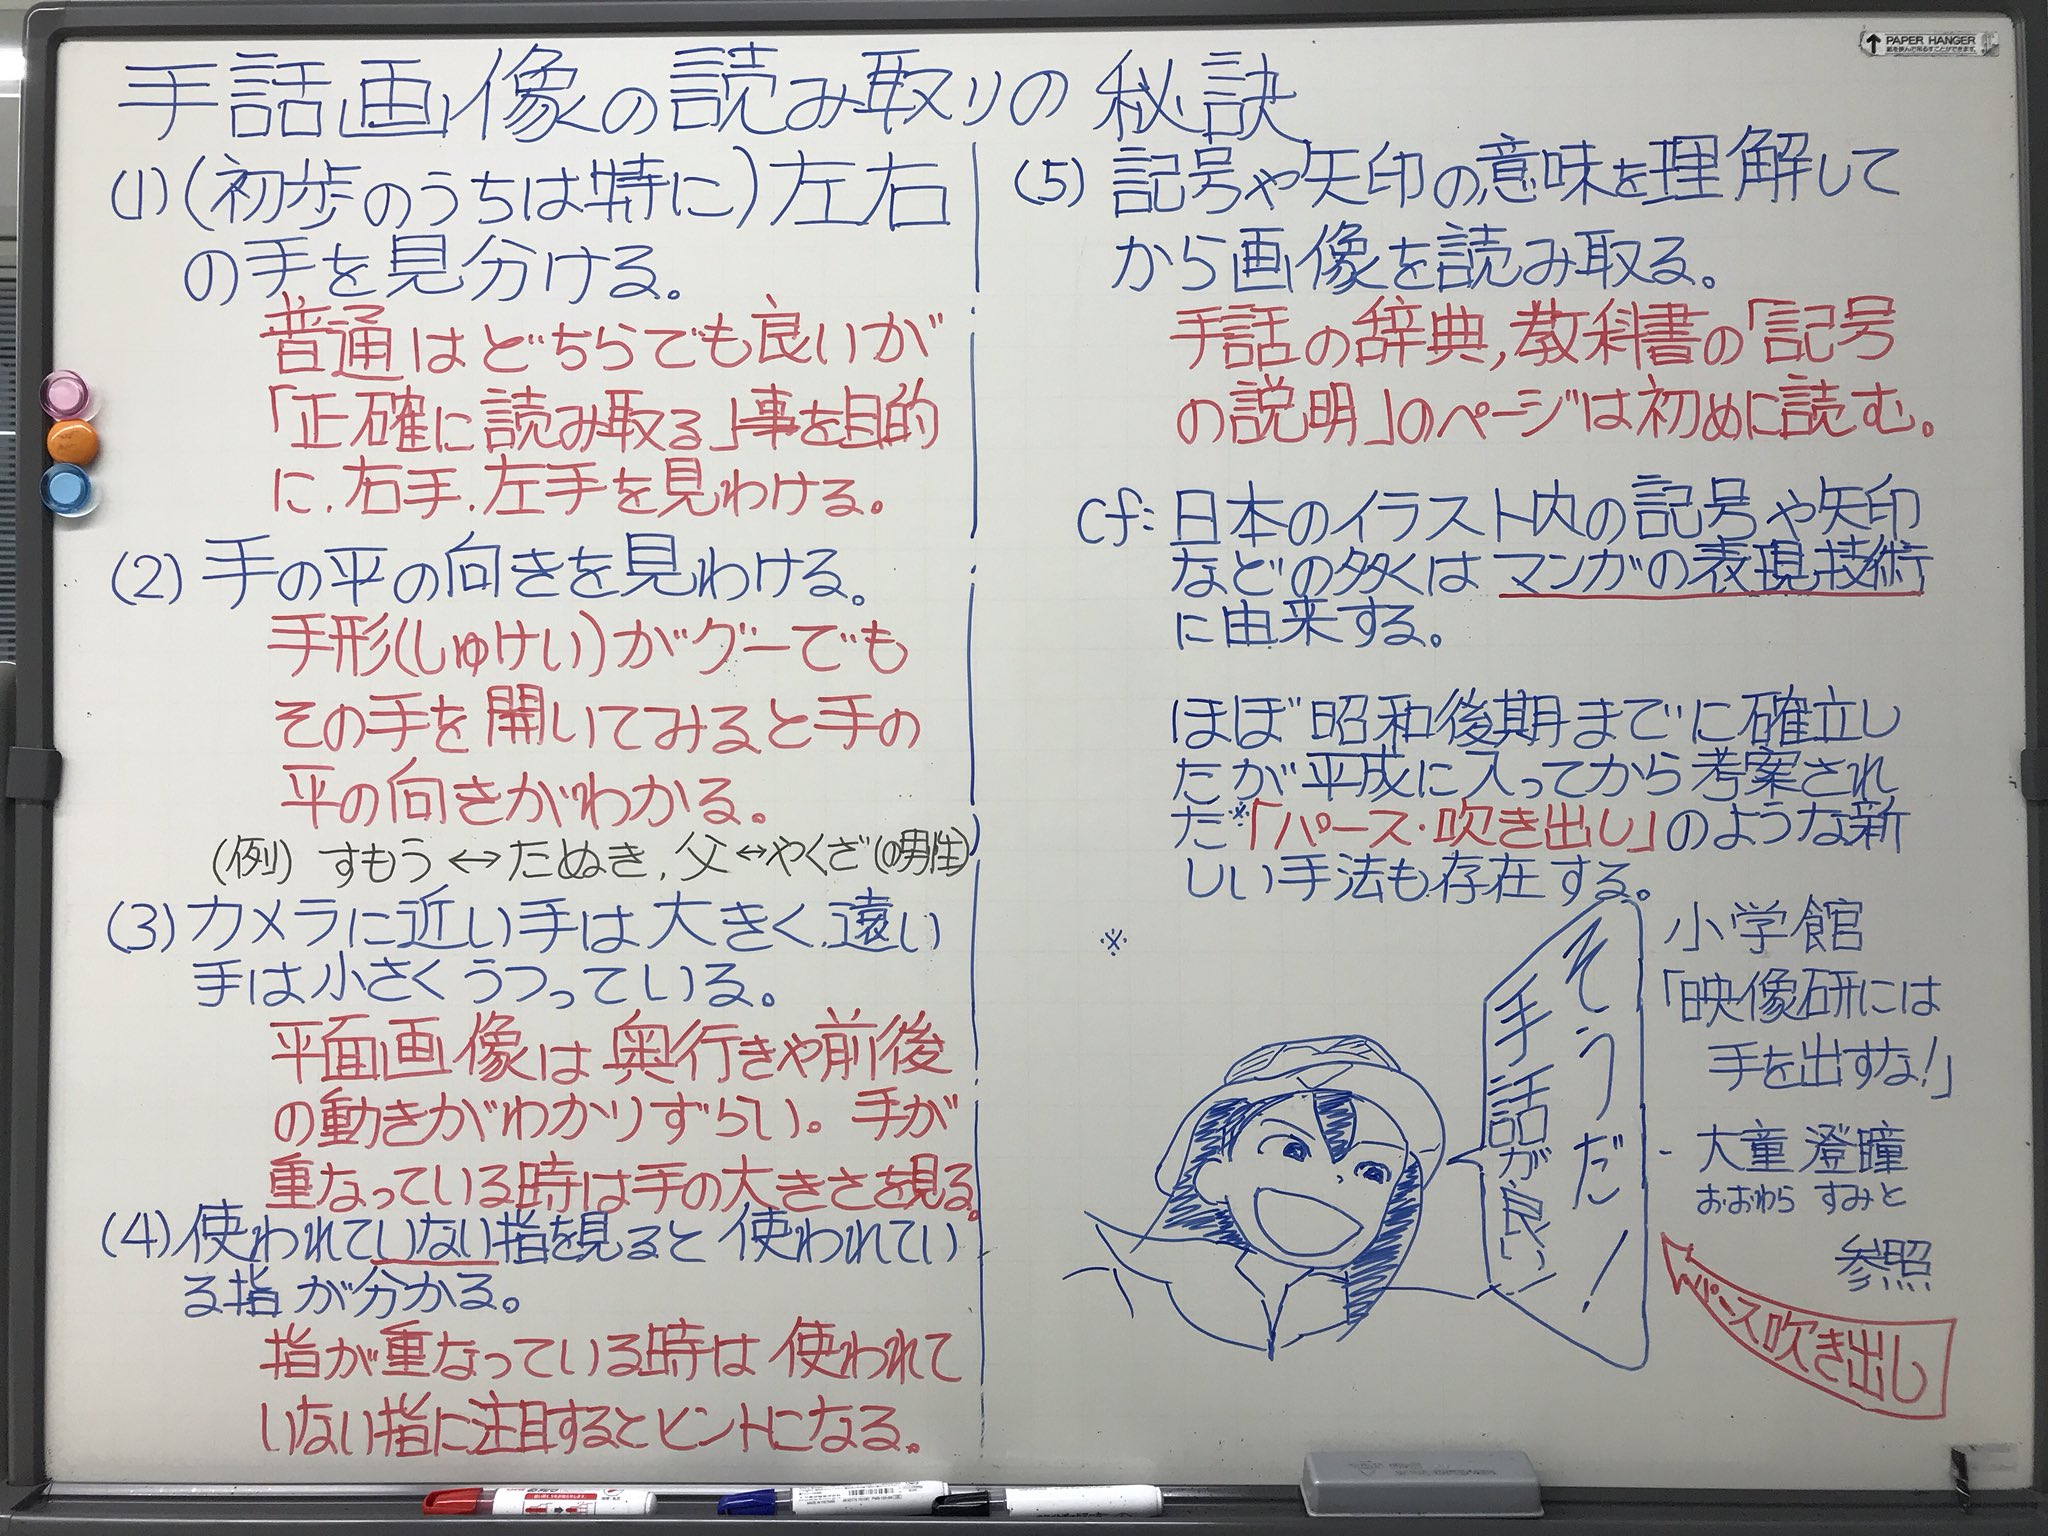 手話画像の読み取りの秘訣
(1)(初歩のうちは特に)左右
の手を見分ける。
普通はどちらでも良いが
「正確に読み取る」事を目的
に、右手、左手を見わける。
(2)手の平の向きを見わける。
手形(しゅけい)がグーでも
その手を開いてみると手の
平の向きがわかる。
(例)すもう↔たぬき、父↔やくざ(の男性)
(3)カメラに近い手は大きく、遠い
手は小さくうつっている。
平面画像は奥行きや前後
の動きがわかりずらい。手が
重なっている時は手の大きさを見る。
(4)使われていない指を見ると使われてい
る指が分かる。
指が重なっている時は使われて
いない指に注目するとヒントになる。
(5)記号や矢印の意味を理解して
から画像を読み取る。
手話の辞典,教科書の「記号
の説明」のページは初めに読む。
cf:日本のイラスト内の記号や矢印
などの多くはマンガの表現技術
に由来する。
ほぼ昭和後期までに確立し
たが平成に入ってから考案され
た※「パース・吹き出し」のような新
しい手法も存在する。
※
そうだ!
手話が良い
小学館
「映像研には
手を出すな!」
- 大童 澄瞳
おおわら すみと
参照
パース吹き出し
PAPER HANGER